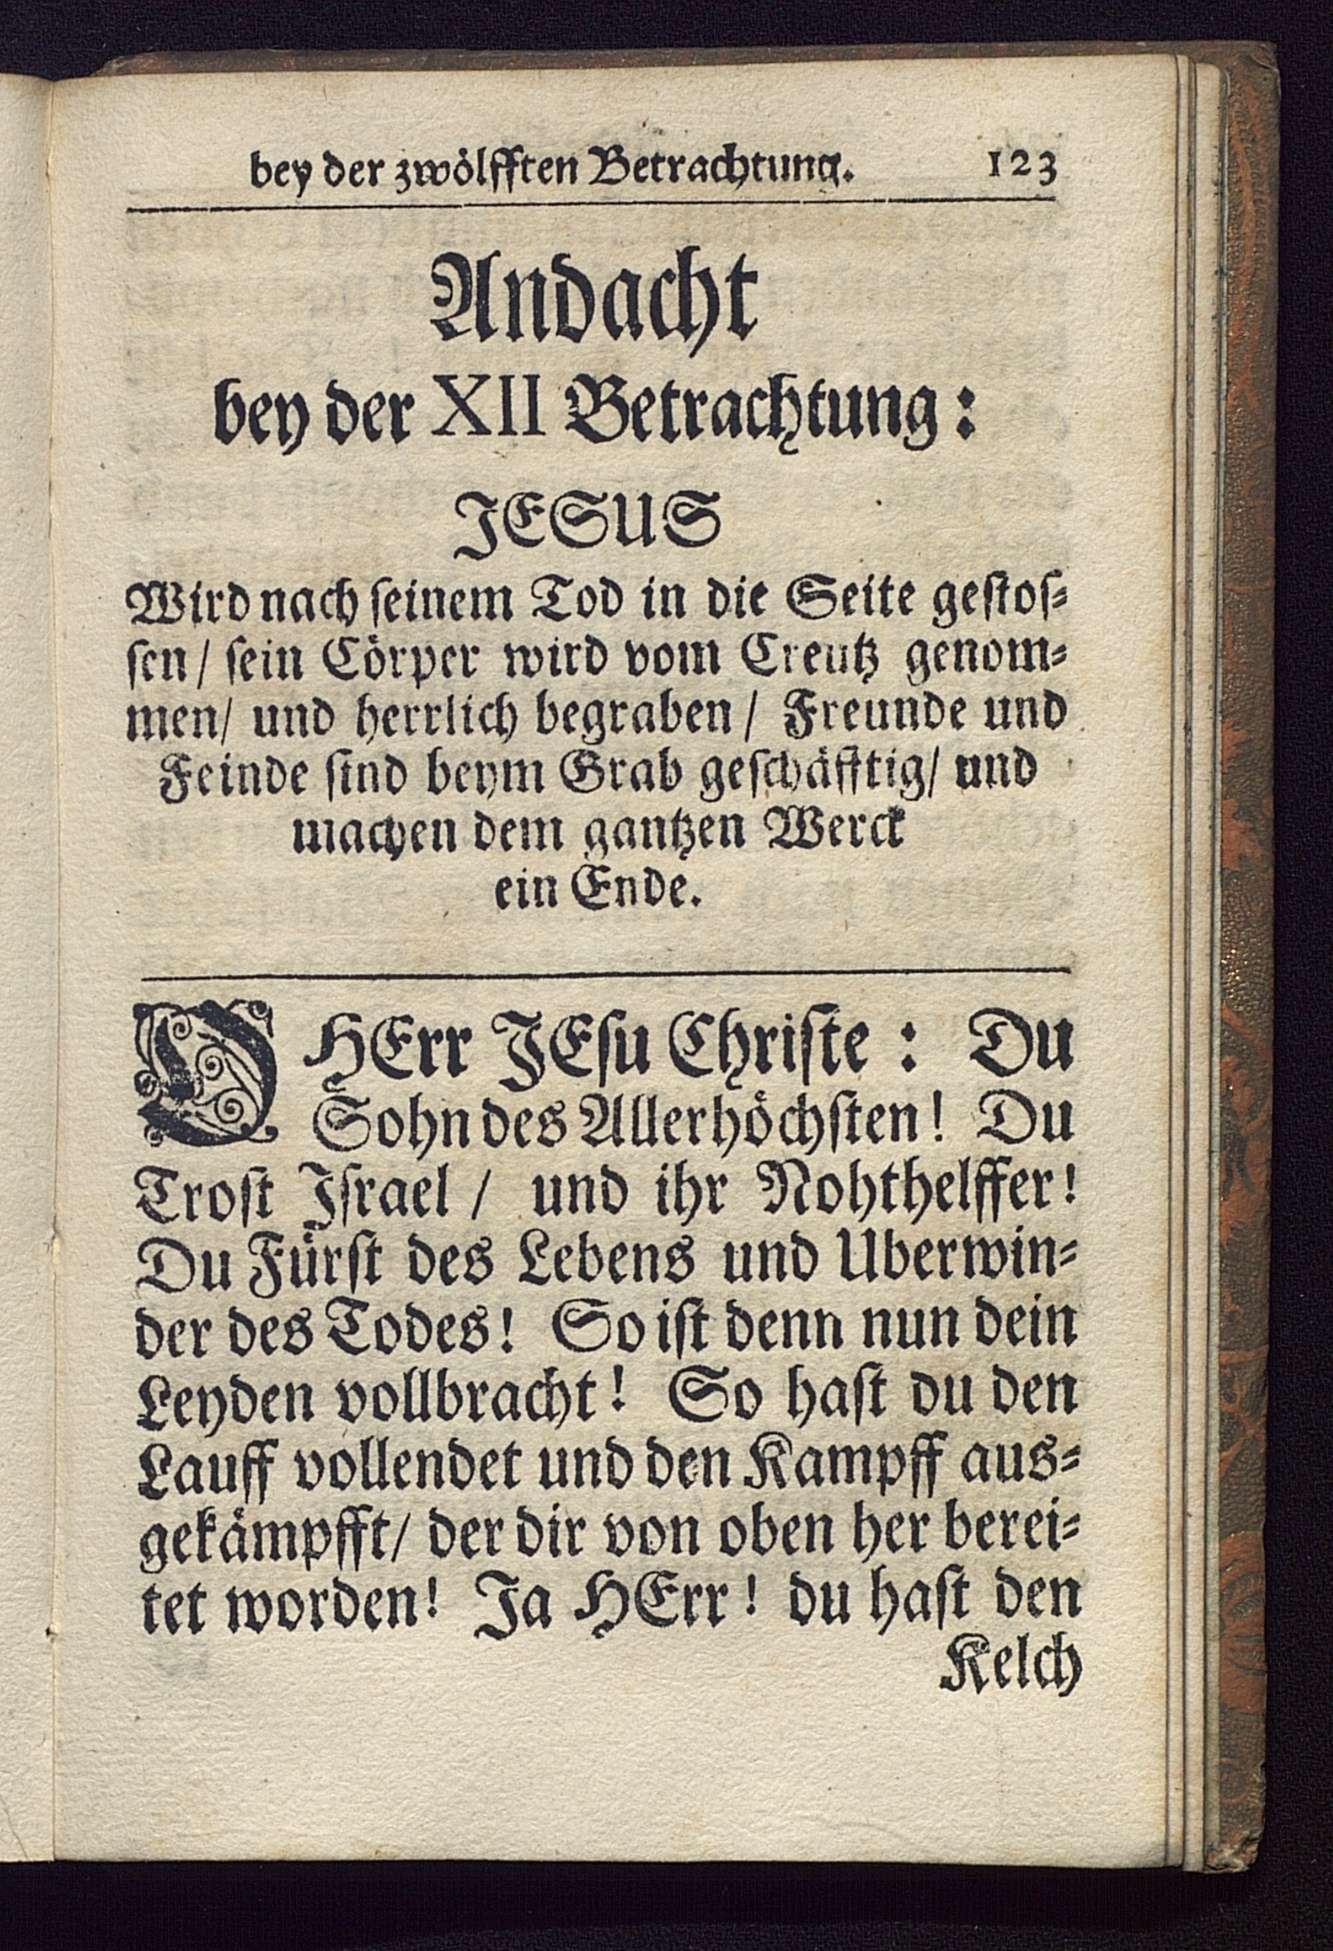 bey der zwölfften Betrachtung. 123
Andacht
bey der XII Betrachtung:
JESUS
Wird nach ſeinem Tod in die Seite geſtoſ-
ſen/ ſein Cörper wird vom Creutz genom-
men/ und herrlich begraben/ Freunde und
Feinde ſind beym Grab geſchäfftig/ und
machen dem gantzen Werck
ein Ende.
O HErr JEſu Chriſte: Du
Sohn des Allerhöchſten! Du
Troſt Iſrael/ und ihr Nohthelffer!
Du Fürſt des Lebens und Uberwin-
der des Todes! So iſt denn nun dein
Leyden vollbracht! So haſt du den
Lauff vollendet und den Kampff aus-
gekämpfft/ der dir von oben her berei-
tet worden! Ja HErr! du haſt den
Kelch